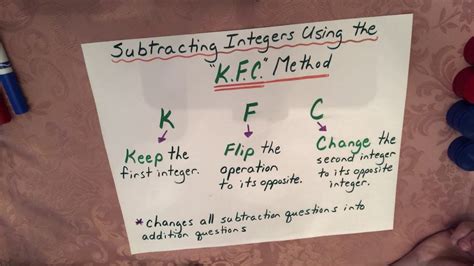 Subtracting Integers Using the
"K.F.C." Method
K F C
Keep the first integer.
Flip the operation to its opposite.
Change the second integer to its opposite integer.
*changes all subtraction questions into
addition questions